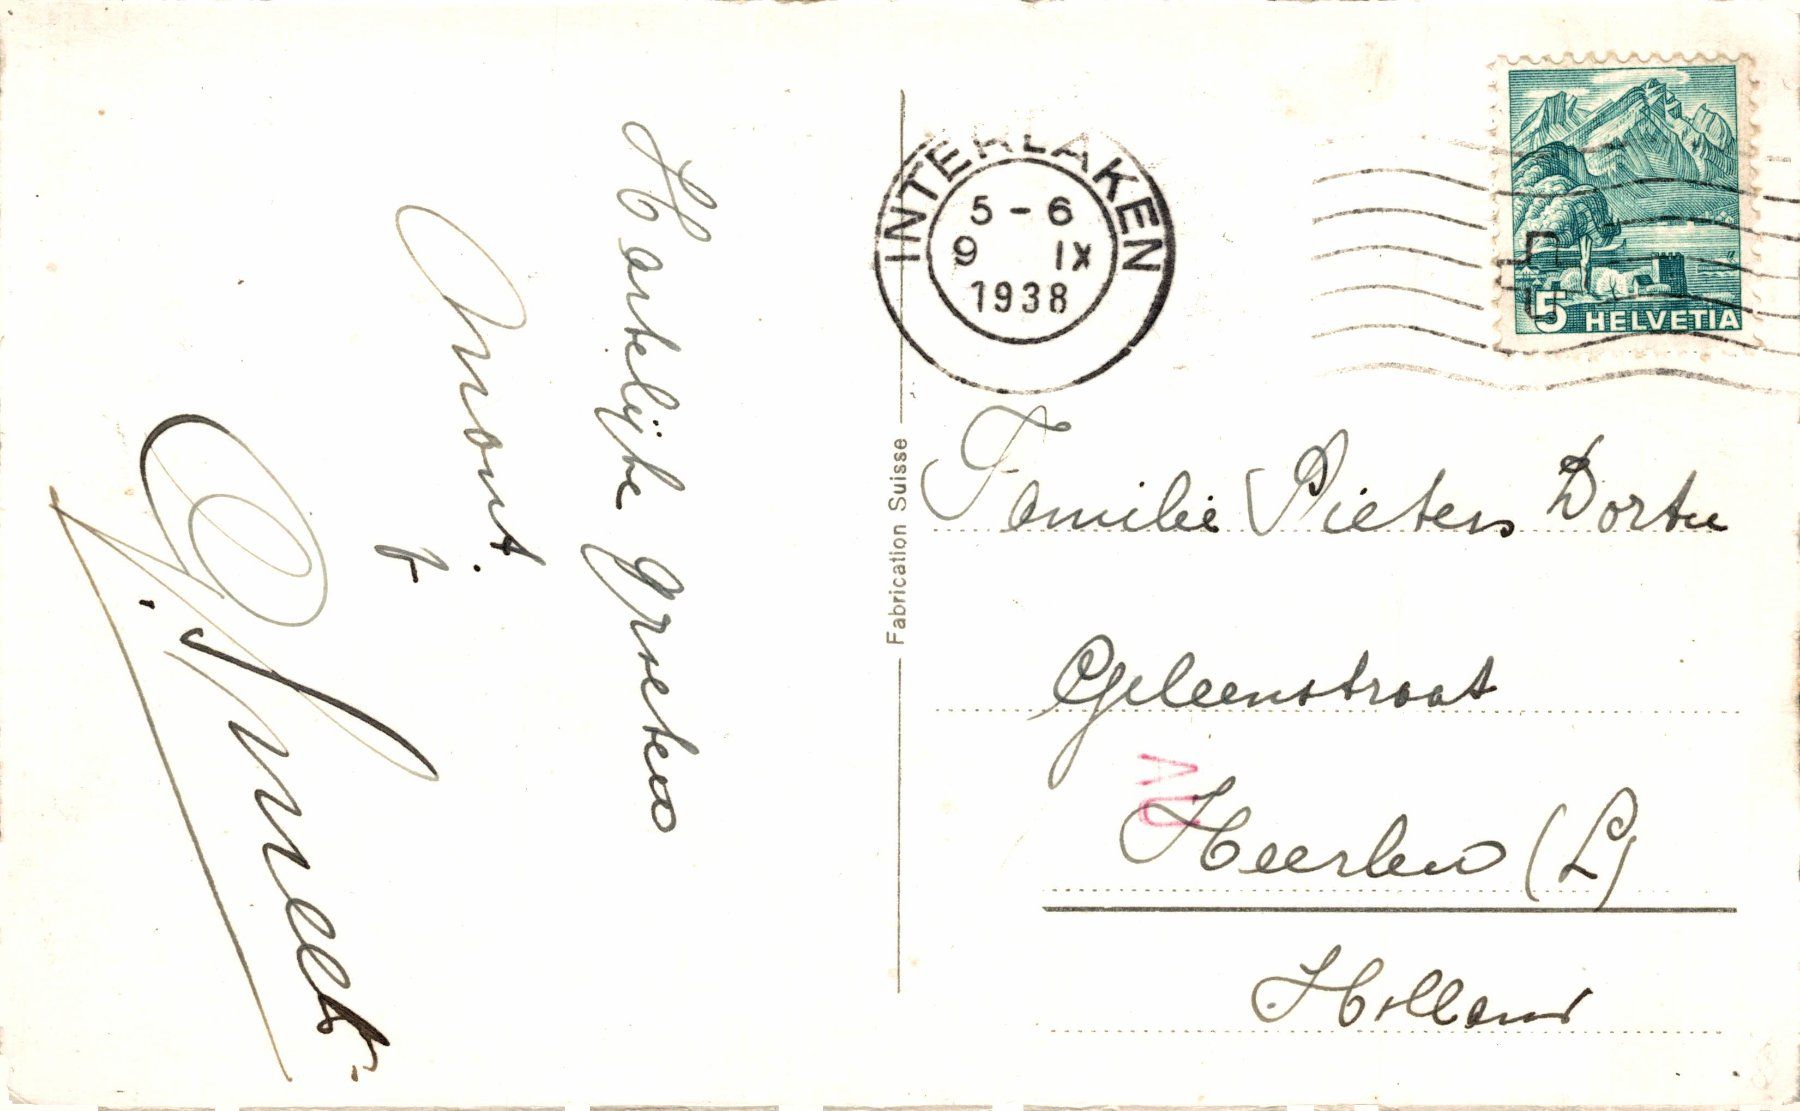 Hartelijke groeten
INTERLAKEN
5-6
9 IX
1938
5 HELVETIA
Fabrication Suisse
Familie Pieters Dortu
Geleenstraat
Heerlen (L)
Holland